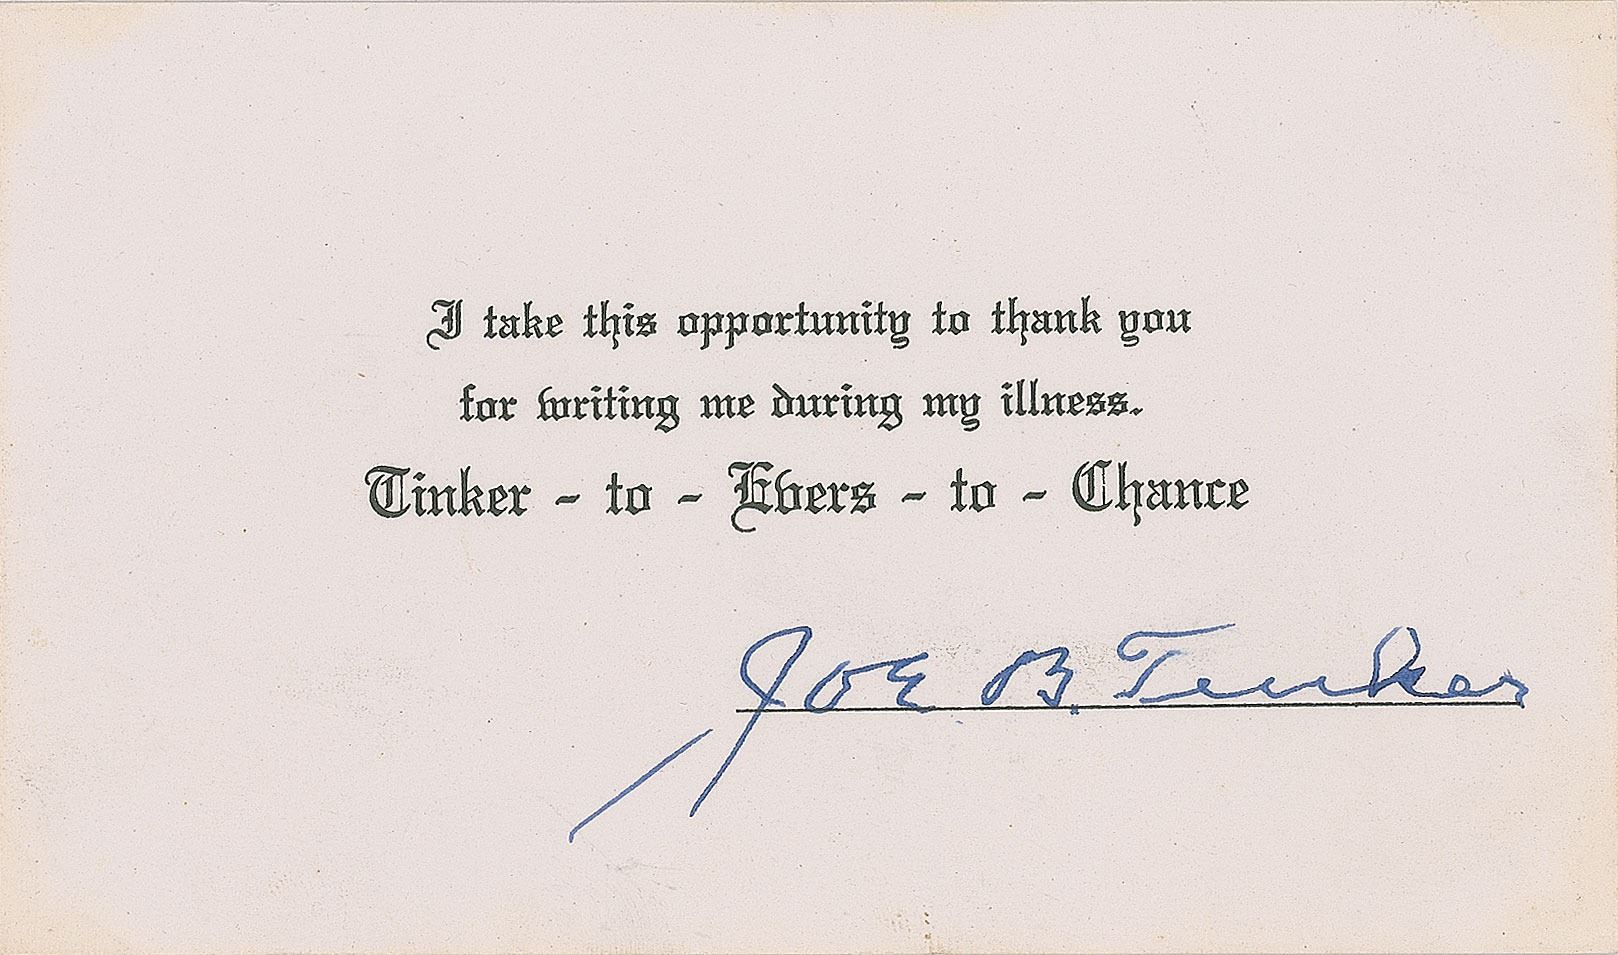 I take this opportunity to thank you
for writing me during my illness.
Tinker - to - Evers - to - Chance
Joe B. Tinker